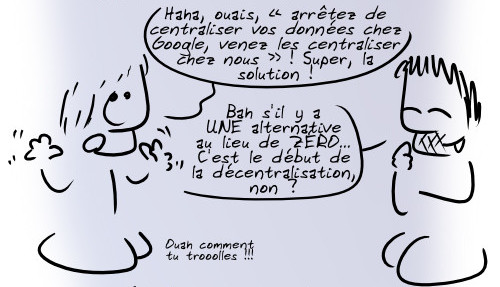 Haha, ouais, « arrêtez de
centraliser vos données chez
Google, venez les centraliser
chez nous » ! Super, la
solution !
Bah s'il y a
UNE alternative
au lieu de ZÉRO...
C'est le début de
la décentralisation,
non ?
Ouah comment
tu trooolles !!!